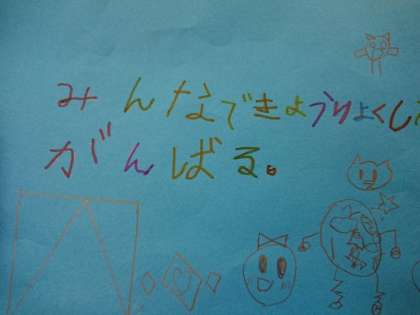 みんなできょうりょくし
がんばる。